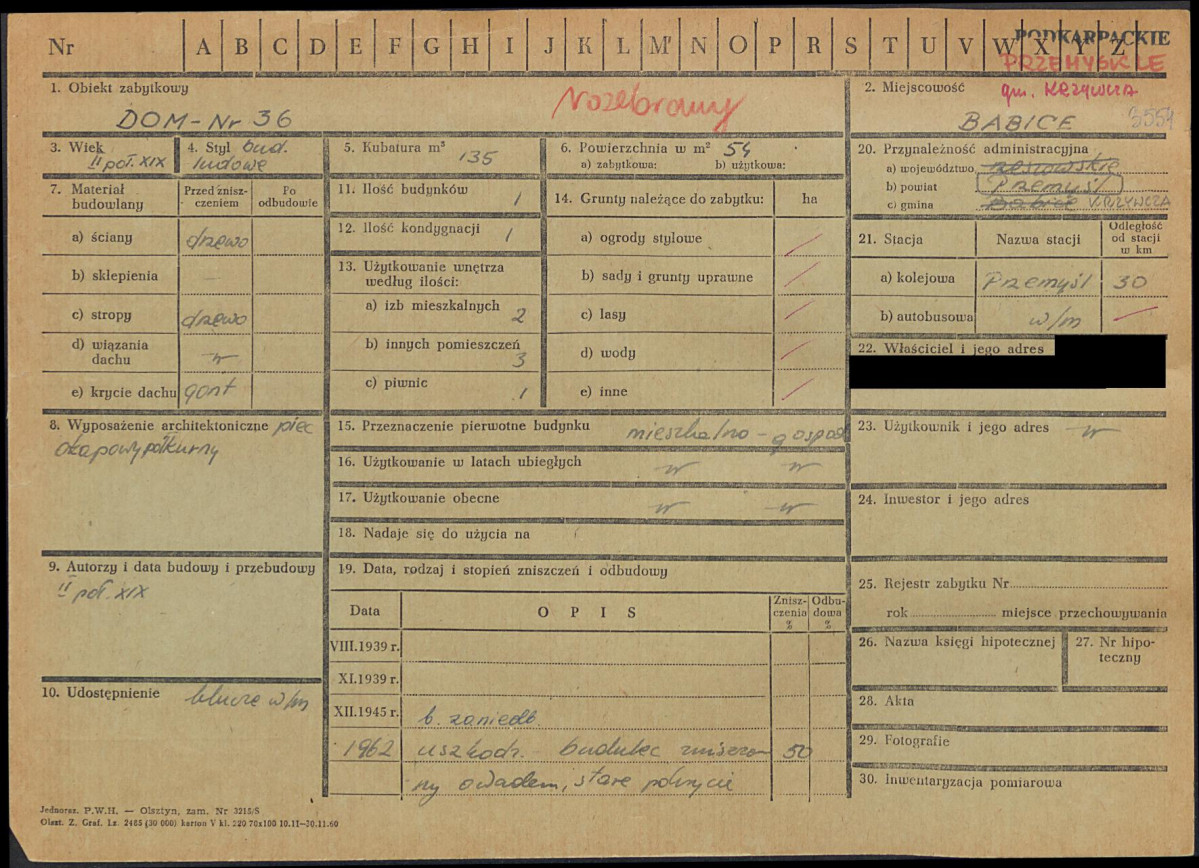 Nr A B C D E F G H I J K L Ł M N O P R S T U V W X Y Z
PODKARPACKIE
PRZEMYSKIE
gm. KRZYWCZA
1. Obiekt zabytkowy
DOM - Nr 36
Rozebrany
2. Miejscowość
BABICE
3554
3. Wiek
II poł. XIX
4. Styl bud.
ludowe
5. Kubatura m³
135
6. Powierzchnia w m² 54
a) zabytkowa: b) użytkowa:
7. Materiał budowlany
Przed znisz-
czeniem
Po
odbudowie
a) ściany drzewo
b) sklepienia —
c) stropy drzewo
d) wiązania
dachu
e) krycie dachu gont
8. Wyposażenie architektoniczne piec
okapowy półkurny
9. Autorzy i data budowy i przebudowy
II poł. XIX
10. Udostępnienie klucze w/m
11. Ilość budynków
1
12. Ilość kondygnacji
1
13. Użytkowanie wnętrza
według ilości:
a) izb mieszkalnych
2
b) innych pomieszczeń
3
c) piwnic
1
14. Grunty należące do zabytku: ha
a) ogrody stylowe
b) sady i grunty uprawne
c) lasy
d) wody
e) inne
15. Przeznaczenie pierwotne budynku mieszkalno - gospod
16. Użytkowanie w latach ubiegłych
17. Użytkowanie obecne
18. Nadaje się do użycia na
19. Data, rodzaj i stopień zniszczeń i odbudowy
Data O P I S
Znisz-
czenia
%
Odbu-
dowa
%
VIII.1939 r.
XI.1939 r.
XII.1945 r. b. zaniedb.
1962 uszkodz. - budulec zniszczo 50
ny owadem, stare pokrycie
20. Przynależność administracyjna
a) województwo rzeszowskie
b) powiat Przemyśl
c) gmina Babice KRZYWCZA
21. Stacja Nazwa stacji
Odległość
od stacji
w km
a) kolejowa Przemyśl 30
b) autobusowa w/m
22. Właściciel i jego adres
23. Użytkownik i jego adres
24. Inwestor i jego adres
25. Rejestr zabytku Nr
rok miejsce przechowywania
26. Nazwa księgi hipotecznej
27. Nr hipo-
teczny
28. Akta
29. Fotografie
30. Inwentaryzacja pomiarowa
Jednoraz. P.W.H. — Olsztyn, zam. Nr 3215/S
Olszt. Z. Graf. Lz. 2485 (30 000) karton V kl. 220 70x100 10.11—30.11.60